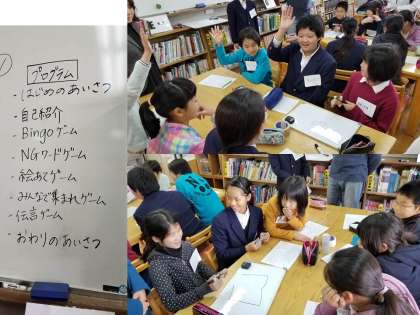 プログラム
・はじめのあいさつ
・自己紹介
・Bingoゲーム
・NGワードゲーム
・絵あてゲーム
・みんなで集まれゲーム
・伝言ゲーム
・おわりのあいさつ